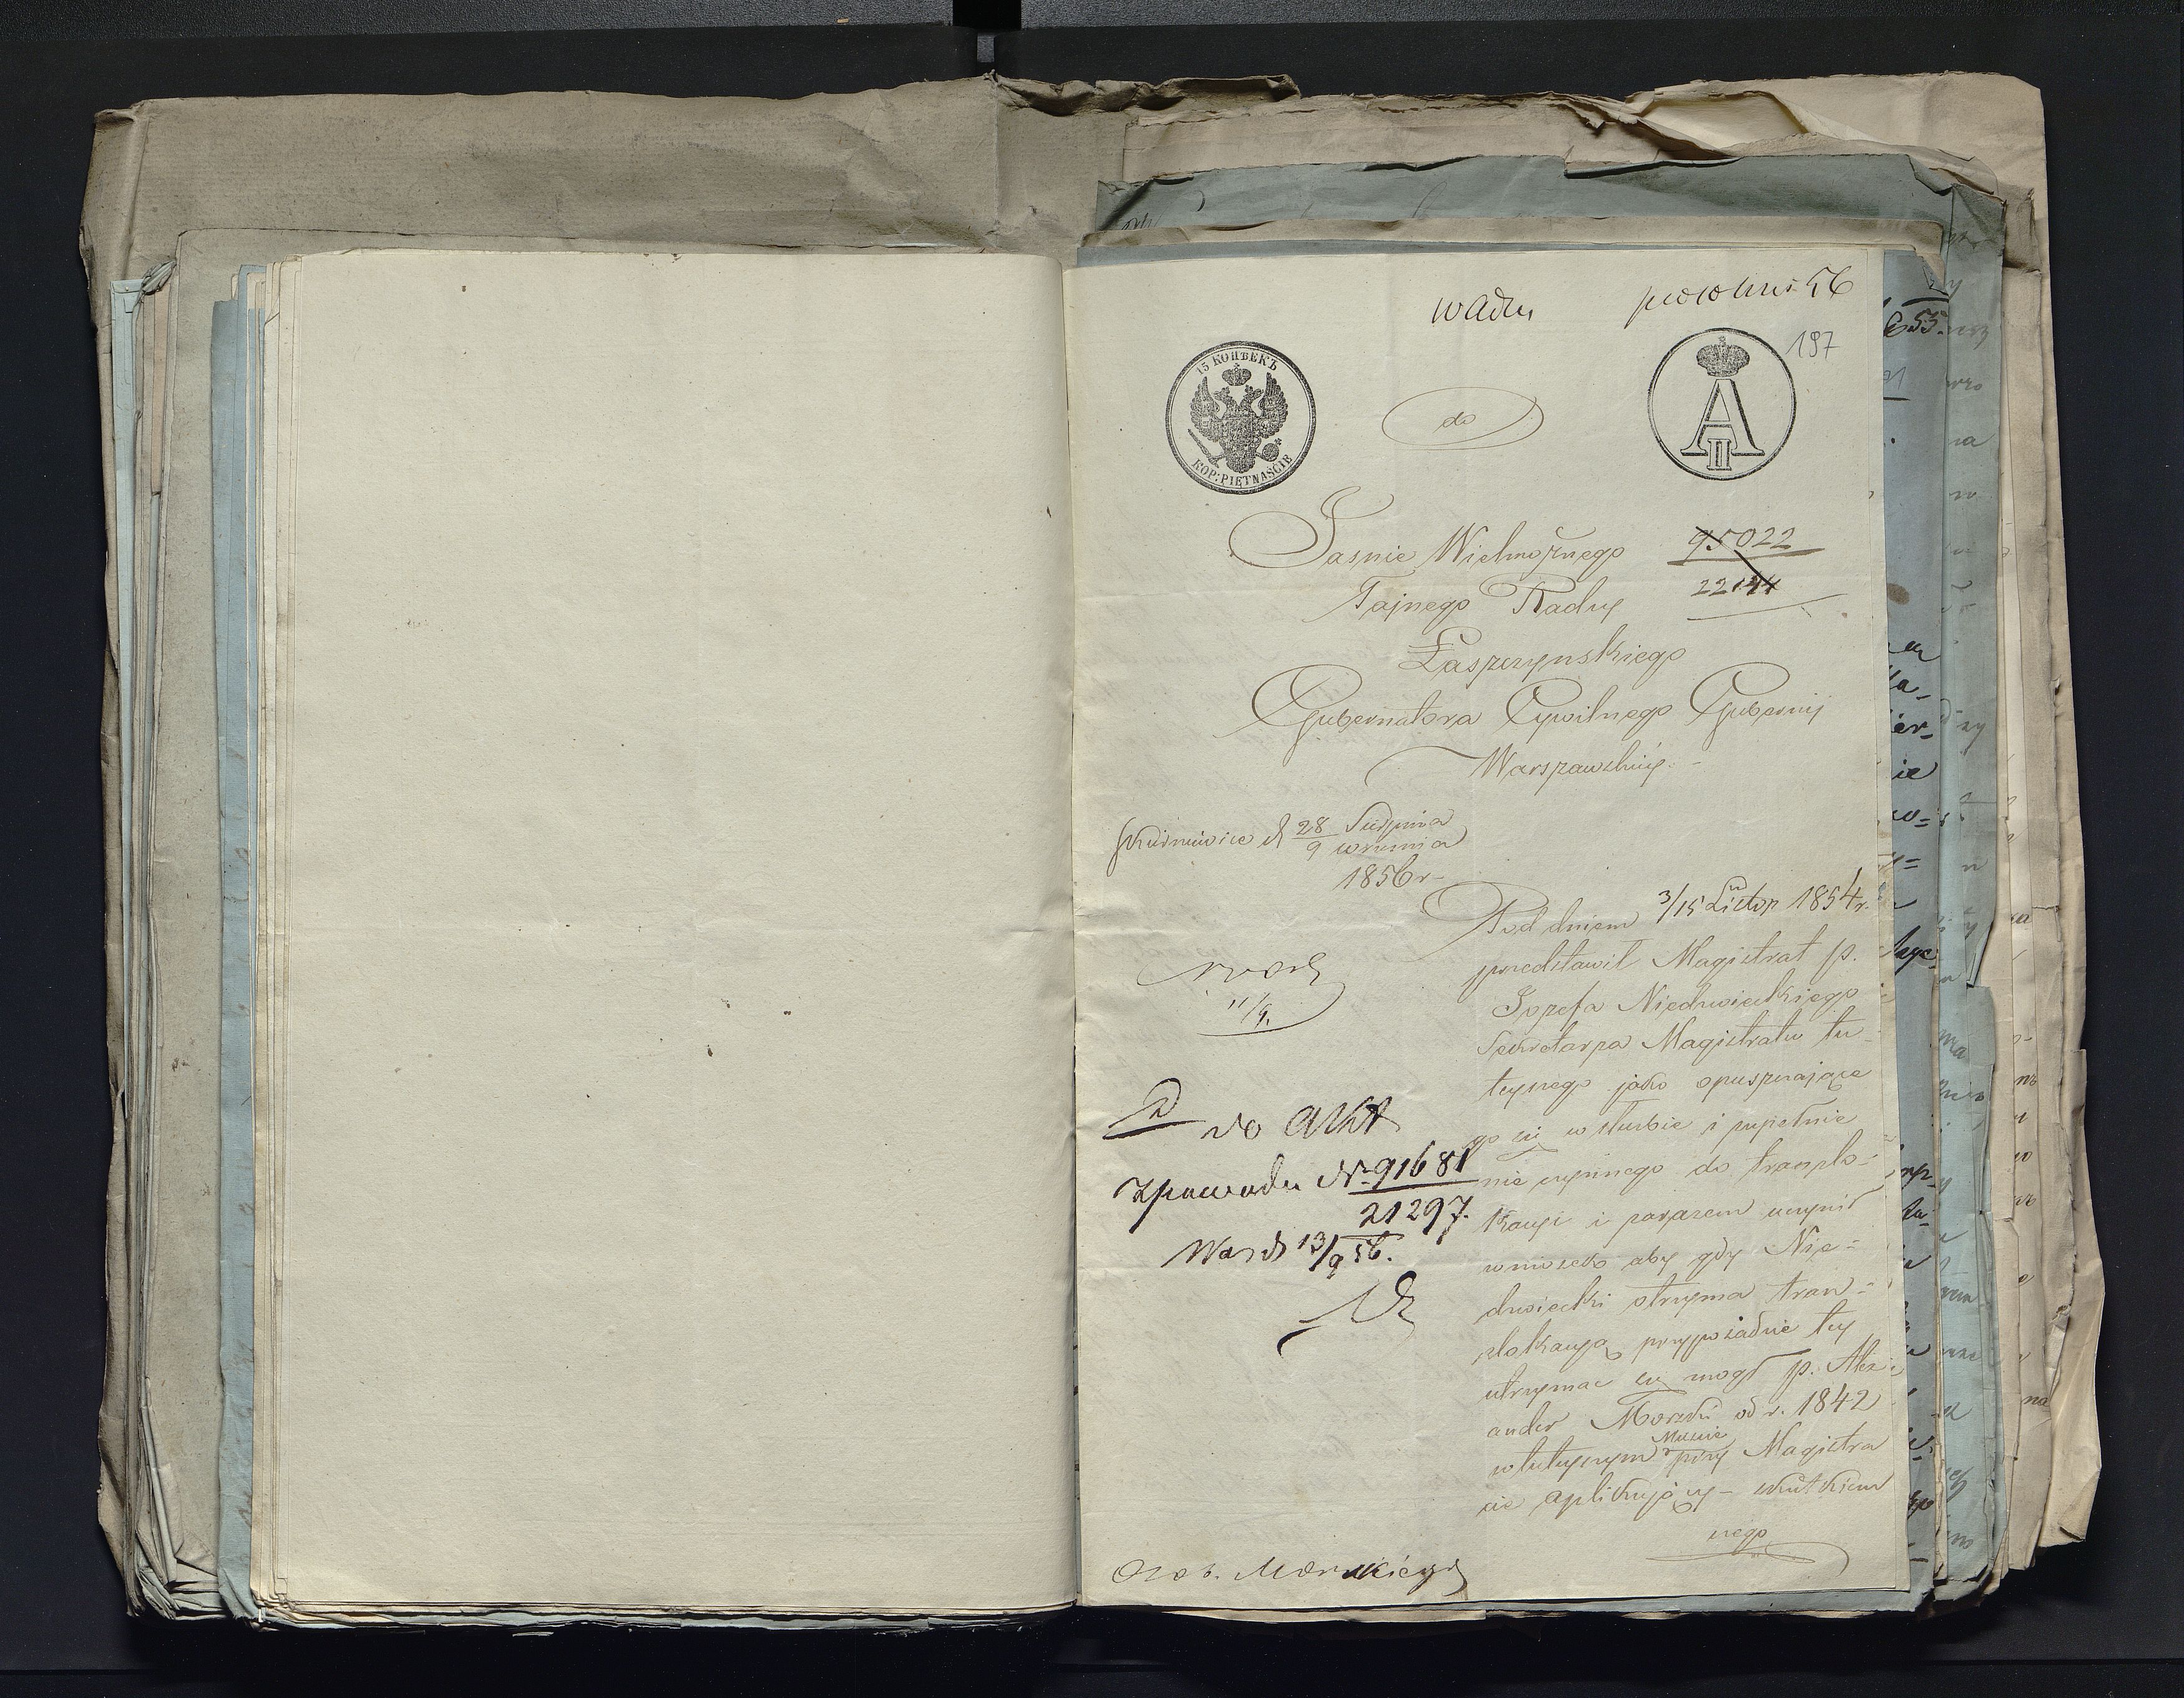 187
15 КОПѢЕКЪ
KOP: PIĘTNAŚCIE
A
II
do
95022
22144
Jasnie Wielmożnego
Tajnego Radcy
Łaszczynskiego
Gubernatora Cywilnego Gubernij
Warszawskiéj.
Skierniewice d 28 Sierpnia
9 wrzesnia
1856 r
Pod dniem 3/15 Listop 1854 r.
przedstawił Magistrat p.
Jozefa Niedzwieckiego
Sekretarza Magistratu tu-
tejszego jako opuszczające
go się w służbie i zupełnie
nie czynnego do translo-
kacyi i zarazem uczynił
wniosek aby gdy Nie-
dzwiecki otrzyma tran-
slokacyą, przy posadzie tej
utrzymać się mogł p. Alex
ander Morski od r. 1842
w tutejszym Miescie przy Magistra
cie aplikujący - skutkiem
czego
11/9.
do Akt
z powodu Nr 91681
21297.
Warsz 13/9 56.
Osob. Morskiego